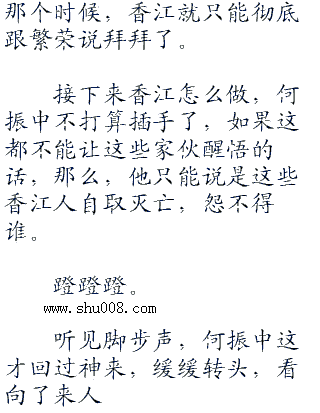 那个时候，香江就只能彻底
跟繁荣说拜拜了。
接下来香江怎么做，何
振中不打算插手了，如果这
都不能让这些家伙醒悟的
话，那么，他只能说是这些
香江人自取灭亡，怨不得
谁。
蹬蹬蹬。
www.shu008.com
听见脚步声，何振中这
才回过神来，缓缓转头，看
向了来人